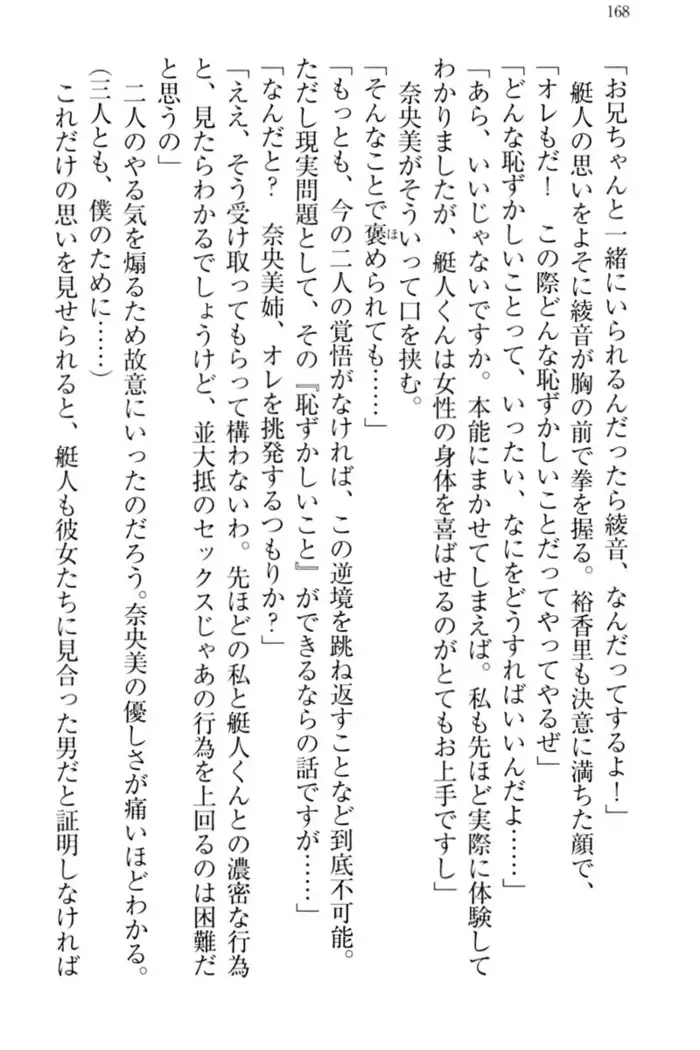 168
「お兄ちゃんと一緒にいられるんだったら綾音、なんだってするよ！」
艇人の思いをよそに綾音が胸の前で拳を握る。裕香里も決意に満ちた顔で、
「オレもだ！　この際どんな恥ずかしいことだってやってやるぜ」
「どんな恥ずかしいことって、いったい、なにをどうすればいいんだよ……」
「あら、いいじゃないですか。本能にまかせてしまえば。私も先ほど実際に体験して
わかりましたが、艇人くんは女性の身体を喜ばせるのがとてもお上手ですし」
奈央美がそういって口を挟む。
「そんなことで褒められても……」
「もっとも、今の二人の覚悟がなければ、この逆境を跳ね返すことなど到底不可能。
ただし現実問題として、その『恥ずかしいこと』ができるならの話ですが……」
「なんだと？　奈央美姉、オレを挑発するつもりか？」
「ええ、そう受け取ってもらって構わないわ。先ほどの私と艇人くんとの濃密な行為
と、見たらわかるでしょうけど、並大抵のセックスじゃあの行為を上回るのは困難だ
と思うの」
二人のやる気を煽るため故意にいったのだろう。奈央美の優しさが痛いほどわかる。
（三人とも、僕のために……）
これだけの思いを見せられると、艇人も彼女たちに見合った男だと証明しなければ